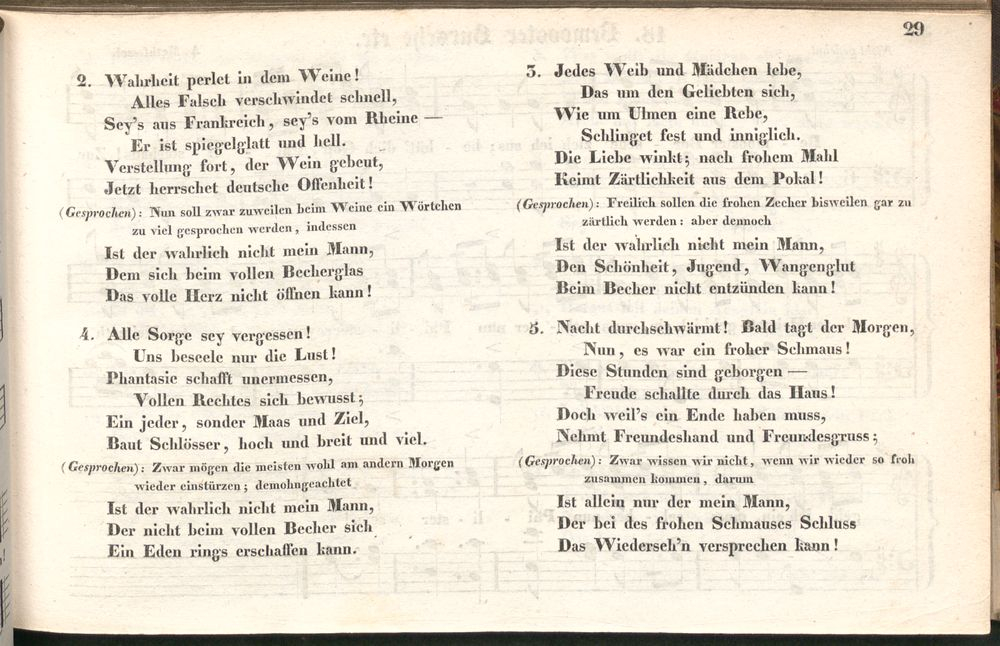 29
2. Wahrheit perlet in dem Weine!
Alles Falsch verschwindet schnell,
Sey's aus Frankreich, sey's vom Rheine —
Er ist spiegelglatt und hell.
Verstellung fort, der Wein gebeut,
Jetzt herrschet deutsche Offenheit!
(Gesprochen): Nun soll zwar zuweilen beim Weine ein Wörtchen
zu viel gesprochen werden, indessen
Ist der wahrlich nicht mein Mann,
Dem sich beim vollen Becherglas
Das volle Herz nicht öffnen kann!
3. Jedes Weib und Mädchen lebe,
Das um den Geliebten sich,
Wie um Ulmen eine Rebe,
Schlinget fest und inniglich.
Die Liebe winkt; nach frohem Mahl
Keimt Zärtlichkeit aus dem Pokal!
(Gesprochen): Freilich sollen die frohen Zecher bisweilen gar zu
zärtlich werden: aber dennoch
Ist der wahrlich nicht mein Mann,
Den Schönheit, Jugend, Wangenglut
Beim Becher nicht entzünden kann!
4. Alle Sorge sey vergessen!
Uns beseele nur die Lust!
Phantasie schafft unermessen,
Vollen Rechtes sich bewusst;
Ein jeder, sonder Maas und Ziel,
Baut Schlösser, hoch und breit und viel.
(Gesprochen): Zwar mögen die meisten wohl am andern Morgen
wieder einstürzen; demohngeachtet
Ist der wahrlich nicht mein Mann,
Der nicht beim vollen Becher sich
Ein Eden rings erschaffen kann.
5. Nacht durchschwärmt! Bald tagt der Morgen,
Nun, es war ein froher Schmaus!
Diese Stunden sind geborgen —
Freude schallte durch das Haus!
Doch weil's ein Ende haben muss,
Nehmt Freundeshand und Freundesgruss;
(Gesprochen): Zwar wissen wir nicht, wenn wir wieder so froh
zusammen kommen, darum
Ist allein nur der mein Mann,
Der bei des frohen Schmauses Schluss
Das Wiederseh'n versprechen kann!